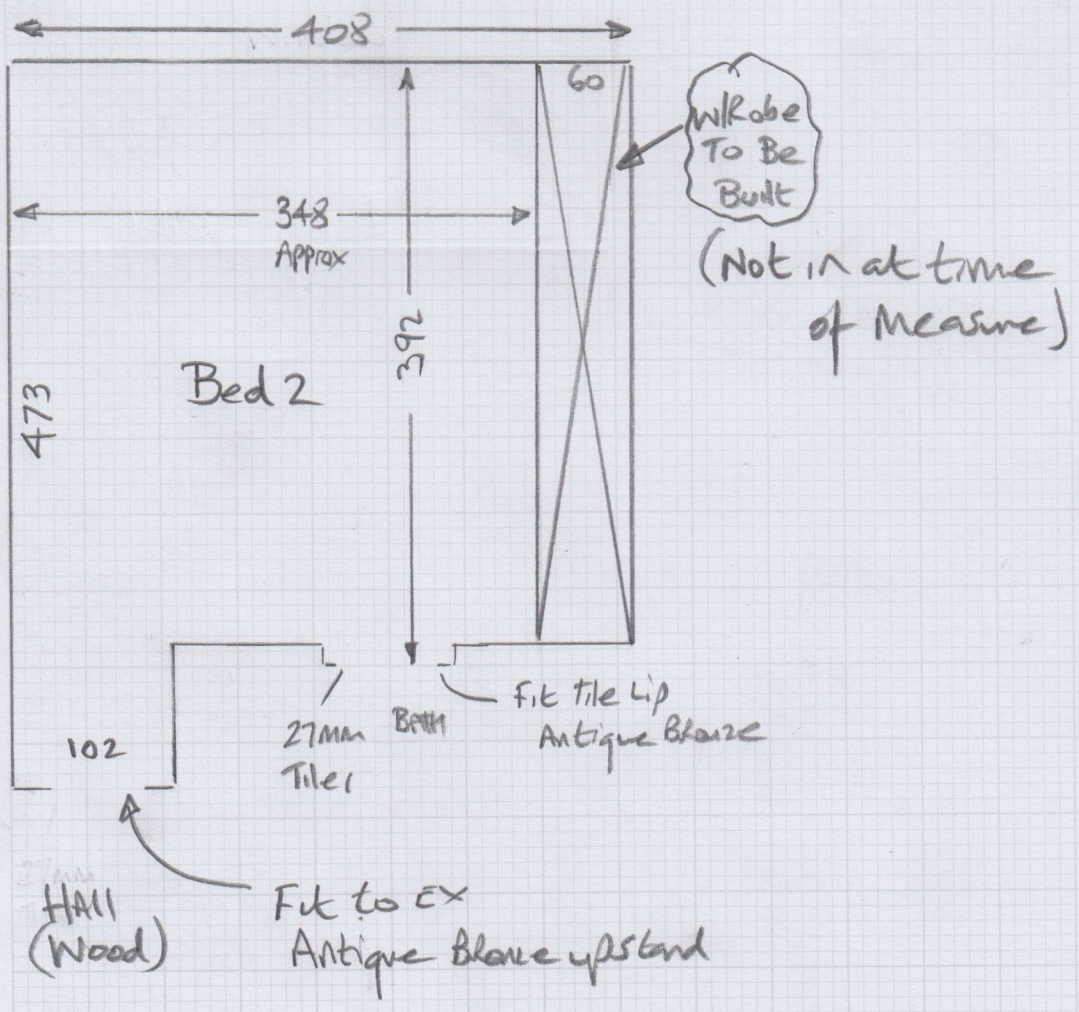 408
60
W/Robe
To Be
Built
(Not in at time
of Measure)
348
Approx
392
473
Bed 2
102
27mm
Tiles
BATH
Fit Tile Lip
Antique Bronze
HAll
(Wood)
Fit to EX
Antique Bronze upstand